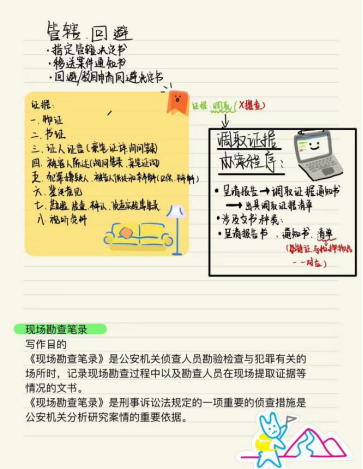 管辖、回避
·指定管辖决定书
·移送案件通知书
·回避/驳回申请回避决定书
证据:
一、物证
二、书证
三、证人证言(
四、被害人陈述(询问笔录、
五、犯罪嫌疑人、被告人供述和辩解(
六、鉴定意见
七、勘验、检查、辨认、侦查实验笔录
八、视听资料
证据:调取(X提查)
调取证据
办案程序:
·呈请报告→调取证据通知书
→出具调取证据清单
·涉及文书种类:
·呈请报告书、通知书、清单
一对应)
现场勘查笔录
写作目的
《现场勘查笔录》是公安机关侦查人员勘验检查与犯罪有关的
场所时,记录现场勘查过程中以及勘查人员在现场提取证据等
情况的文书。
《现场勘查笔录》是刑事诉讼法规定的一项重要的侦查措施是
公安机关分析研究案情的重要依据。